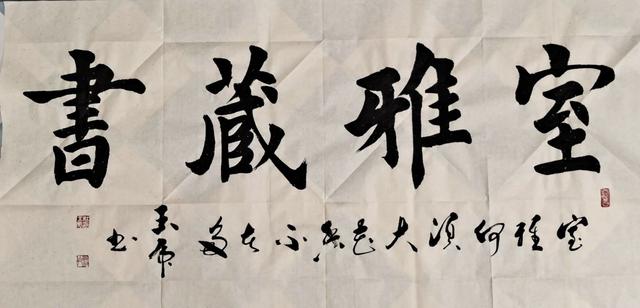 室雅藏書
室雅何須大花香不在多
玉
书